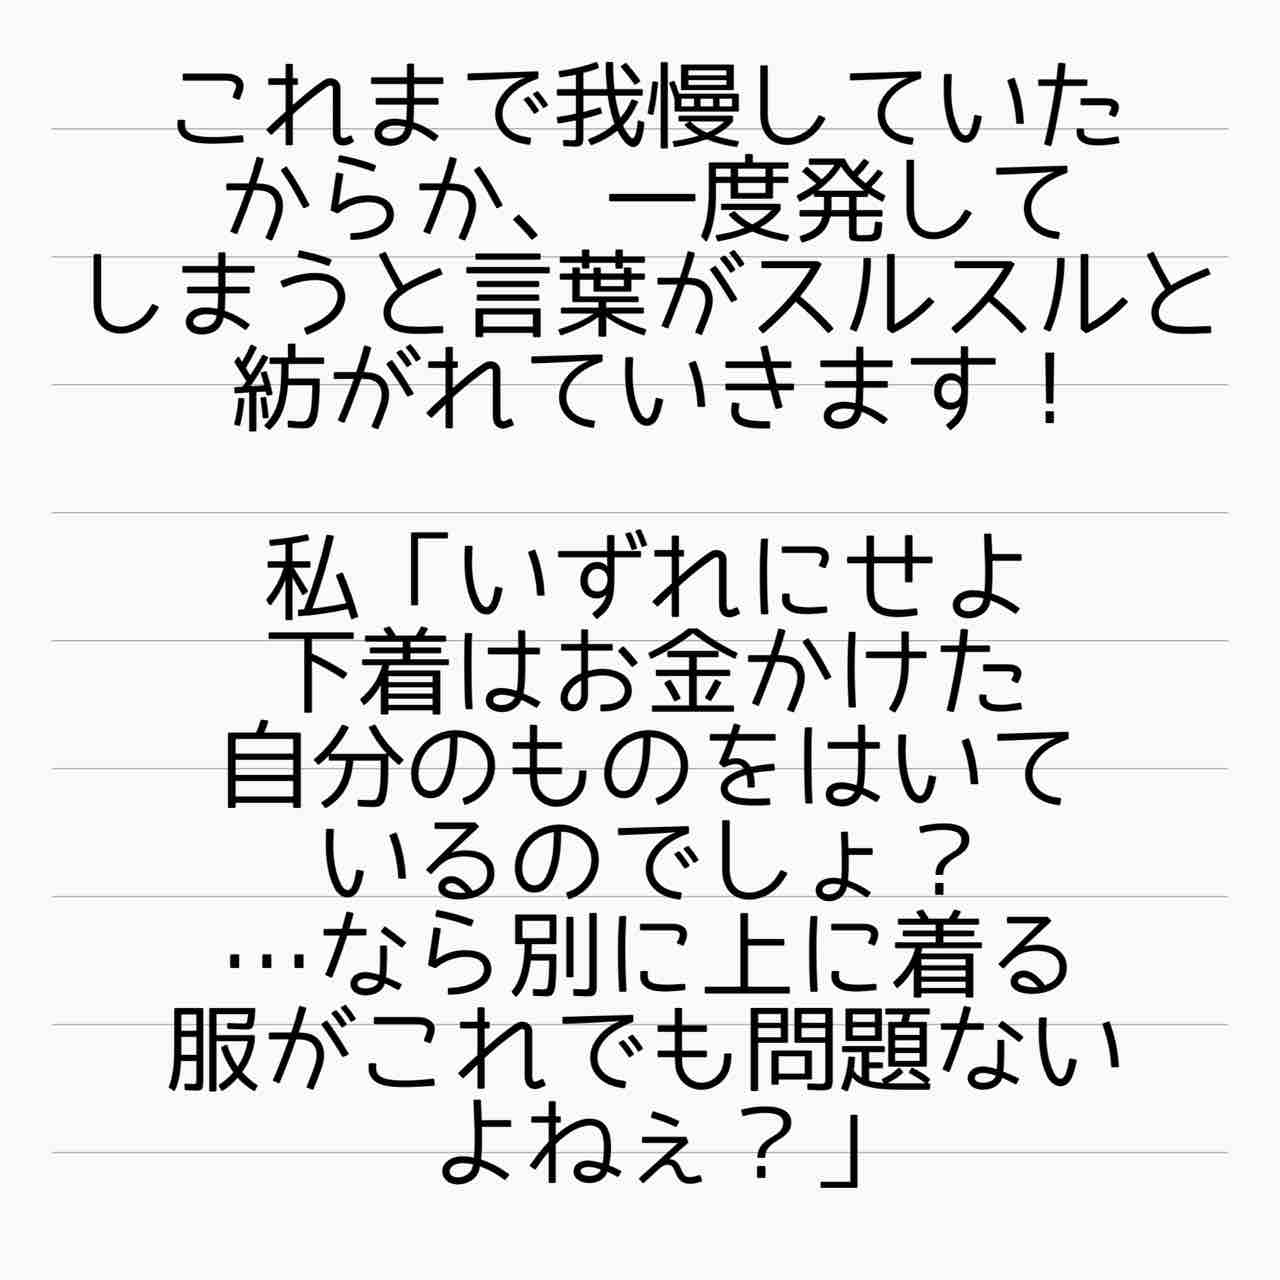 これまで我慢していた
からか、一度発して
しまうと言葉がスルスルと
紡がれていきます！
私「いずれにせよ
下着はお金かけた
自分のものをはいて
いるのでしょ？
…なら別に上に着る
服がこれでも問題ない
よねぇ？」